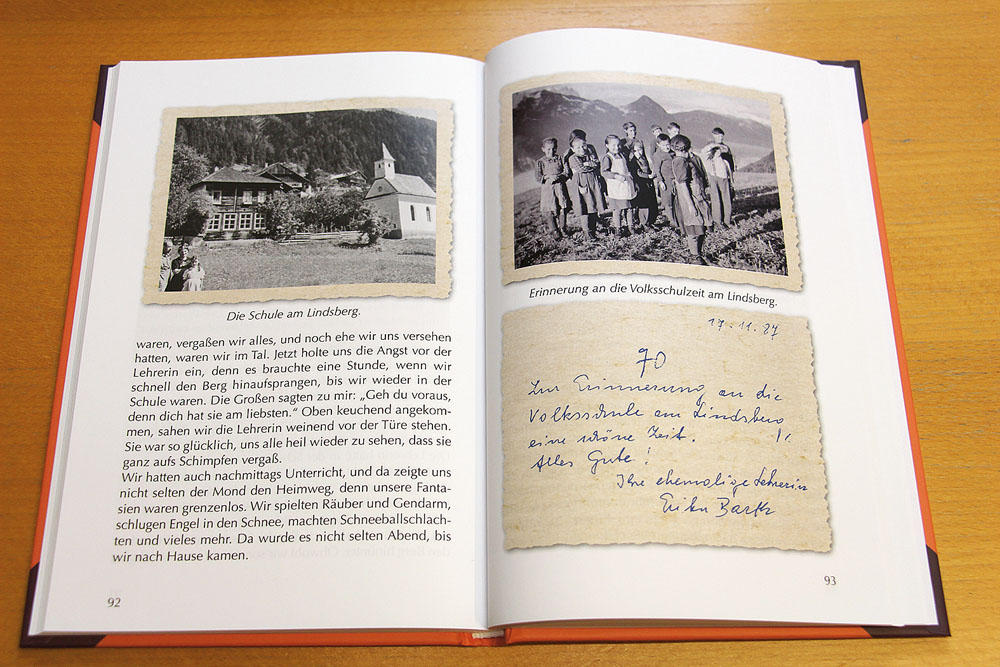 Die Schule am Lindsberg.
waren, vergaßen wir alles, und noch ehe wir uns versehen
hatten, waren wir im Tal. Jetzt holte uns die Angst vor der
Lehrerin ein, denn es brauchte eine Stunde, wenn wir
schnell den Berg hinaufsprangen, bis wir wieder in der
Schule waren. Die Großen sagten zu mir: „Geh du voraus,
denn dich hat sie am liebsten.“ Oben keuchend angekom-
men, sahen wir die Lehrerin weinend vor der Türe stehen.
Sie war so glücklich, uns alle heil wieder zu sehen, dass sie
ganz aufs Schimpfen vergaß.
Wir hatten auch nachmittags Unterricht, und da zeigte uns
nicht selten der Mond den Heimweg, denn unsere Fanta-
sien waren grenzenlos. Wir spielten Räuber und Gendarm,
schlugen Engel in den Schnee, machten Schneeballschlach-
ten und vieles mehr. Da wurde es nicht selten Abend, bis
wir nach Hause kamen.
92
Erinnerung an die Volksschulzeit am Lindsberg.
17.11.87
70
Zur Erinnerung an die
Volksschule am Lindsberg
eine schöne Zeit.
Alles Gute!
Ihre ehemalige Lehrerin
Erika
93